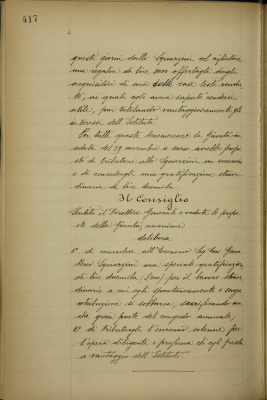 417
questi giorni dallo Squarzini col rifiutare
una regalia da lire 200 offertagli dagli
acquisitori di una delle case testè vendu-
te, ai quali egli aveva saputo rendersi
utile, pur tutelando vantaggiosamente gli
interessi dell'Istituto.
Per tutte queste benemerenze la Giunta in
seduta del 29 novembre u. scorso avrebbe propo-
sto di tributare allo Squarzini un encomio
e di concedergli una gratificazione straor-
dinaria di lire duemila
Il Consiglio
Sentito il Direttore Generale e veduta la propo-
sta della Giunta, unanime
delibera
1° di concedere all'Economo Sig. Cav.
Squarzini una speciale gratificazione
di lire duemila (2000) per il lavoro straor-
dinario a cui egli spontaneamente e senza
retribuzione si sobbarca, sacrificando an-
che gran parte del congedo annuale;
2° di tributargli l'encomio solenne per
l'opera diligente e proficua che egli presta
a vantaggio dell'Istituto.